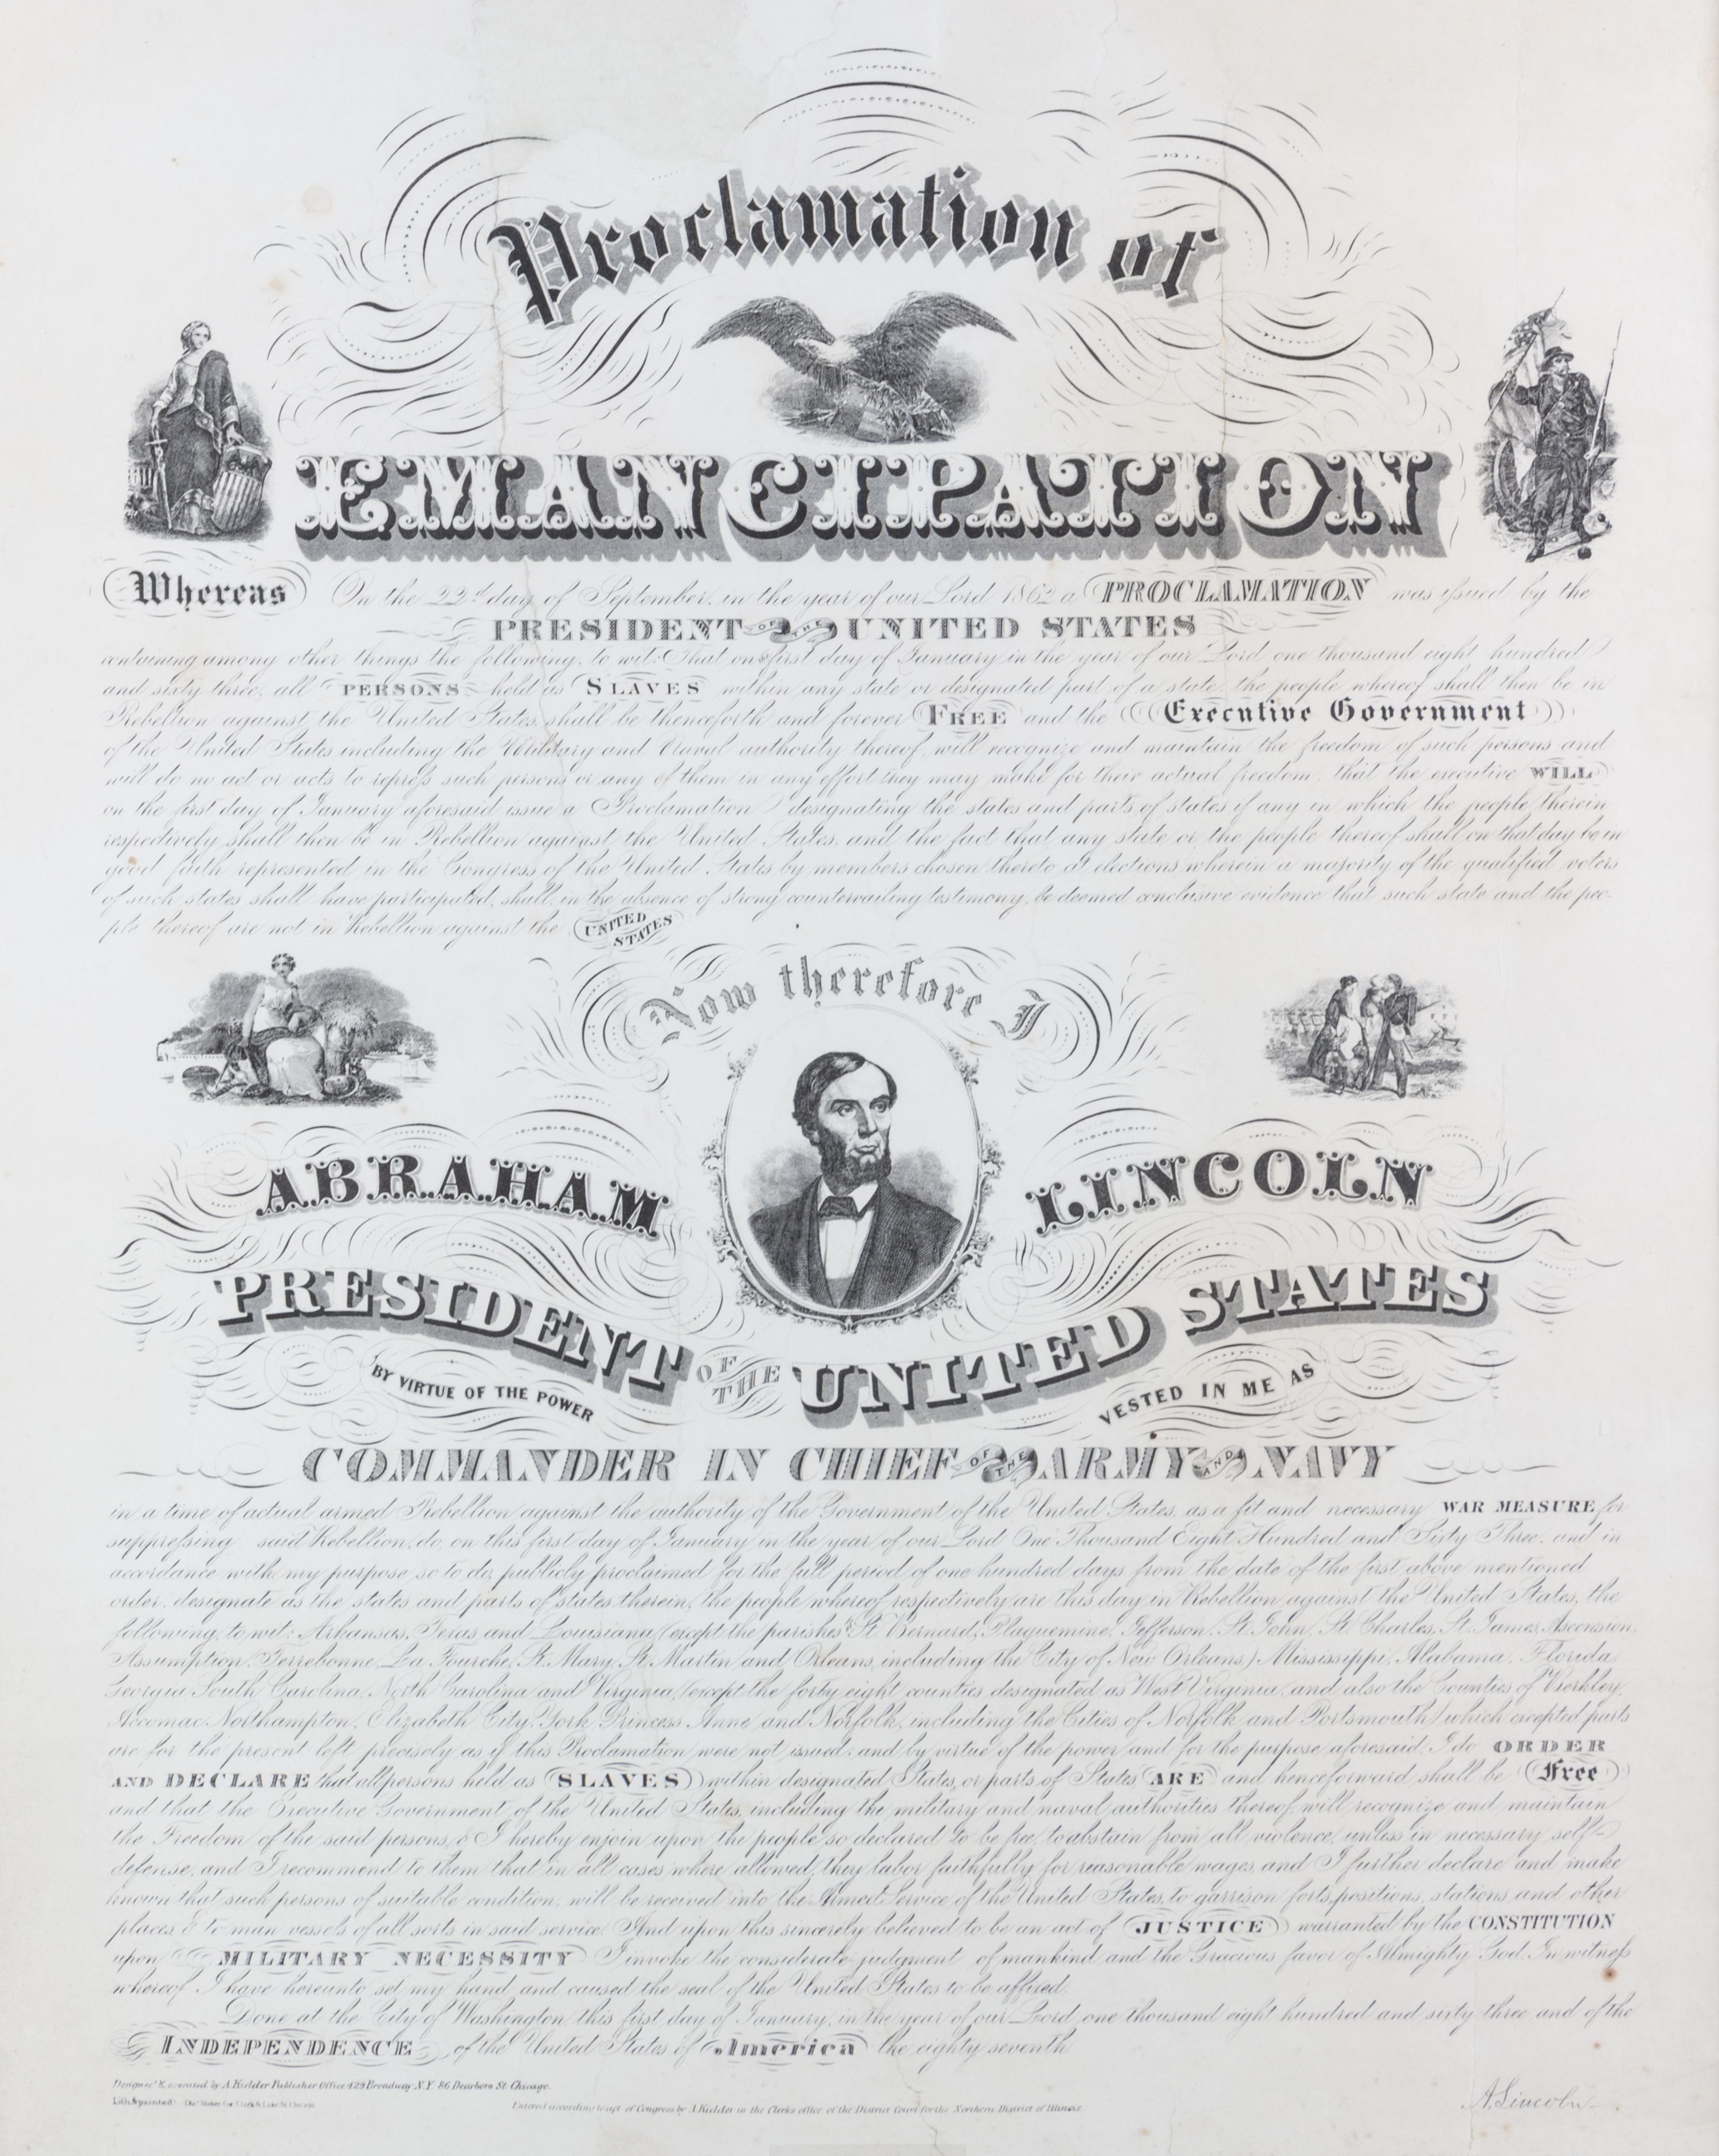 Proclamation of
EMANCIPATION
Whereas On the 22d day of September, in the year of our Lord 1862 a PROCLAMATION was issued by the
PRESIDENT OF THE UNITED STATES
containing among other things the following, to wit: That on first day of January in the year of our Lord one thousand eight hundred
and sixty three, all PERSONS held as SLAVES within any state or designated part of a state, the people whereof shall then be in
Rebellion against the United States, shall be thenceforth and forever FREE and the Executive Government
of the United States including the Military and Naval authority thereof, will recognize and maintain the freedom of such persons and
will do no act or acts to repress such persons or any of them in any effort they may make for their actual freedom, that the executive WILL
on the first day of January aforesaid issue a Proclamation designating the states and parts of states if any in which the people therein
respectively shall then be in Rebellion against the United States, and the fact that any state or the people thereof shall on that day be in
good faith represented in the Congress of the United States by members chosen thereto at elections wherein a majority of the qualified voters
of such states shall have participated, shall, in the absence of strong countervailing testimony, be deemed conclusive evidence that such state and the peo-
ple thereof are not in Rebellion against the UNITED STATES
Now therefore I
ABRAHAM LINCOLN
PRESIDENT OF THE UNITED STATES
BY VIRTUE OF THE POWER VESTED IN ME AS
COMMANDER IN CHIEF OF THE ARMY AND NAVY
in a time of actual armed Rebellion against the authority of the Government of the United States, as a fit and necessary WAR MEASURE for
suppressing said Rebellion, do, on this first day of January in the year of our Lord One Thousand Eight Hundred and Sixty Three, and in
accordance with my purpose so to do, publicly proclaimed for the full period of one hundred days from the date of the first above mentioned
order, designate as the states and parts of states therein, the people whereof respectively are this day in Rebellion against the United States, the
following, to wit: Arkansas, Texas and Louisiana (except the parishes of St. Bernard, Plaquemine, Jefferson, St. John, St. Charles, St. James, Ascension,
Assumption, Terrebonne, La Fourche, St. Mary, St. Martin and Orleans, including the City of New Orleans) Mississippi, Alabama, Florida,
Georgia South Carolina, North Carolina and Virginia, (except the forty eight counties designated as West Virginia, and also the Counties of Berkley,
Accomac, Northampton, Elizabeth City, York, Princess Anne and Norfolk, including the Cities of Norfolk and Portsmouth) which excepted parts
are for the present left precisely as if this Proclamation were not issued; and by virtue of the power and for the purpose aforesaid, I do ORDER
AND DECLARE that all persons held as SLAVES within designated States, or parts of States ARE and henceforward shall be Free
and that the Executive Government of the United States, including the military and naval authorities thereof, will recognize and maintain
the Freedom of the said persons, & I hereby enjoin upon the people so declared to be free, to abstain from all violence, unless in necessary self-
defense, and I recommend to them that in all cases where allowed, they labor faithfully for reasonable wages, and I further declare and make
known that such persons of suitable condition, will be received into the Armed Service of the United States, to garrison forts, positions, stations and other
places, & to man vessels of all sorts in said service. And upon this sincerely believed to be an act of JUSTICE warranted by the CONSTITUTION
upon MILITARY NECESSITY I invoke the considerate judgment of mankind and the Gracious favor of Almighty God. In witness
whereof I have hereunto set my hand and caused the seal of the United States to be affixed.
Done at the City of Washington this first day of January, in the year of our Lord, one thousand eight hundred and sixty three and of the
INDEPENDENCE of the United States of America the eighty seventh.
Designed & executed by A. Kidder Publisher Office 429 Broadway N.Y. 86 Dearborn St. Chicago.
Lith. & printed Clark & Lake St. Chicago
Entered according to act of Congress by A. Kidder in the Clerks office of the District Court for the Northern District of Illinois.
A. Lincoln